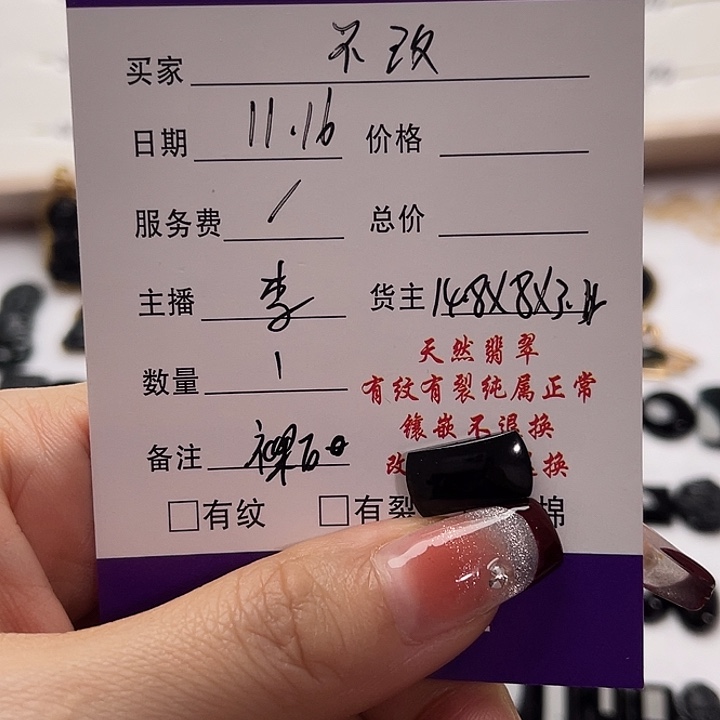 买家 不改
日期 11.16 价格
服务费 / 总价
主播 李 货主 14.8X8X3.
数量 1
天然翡翠
有纹有裂纯属正常
镶嵌不退换
备注 裸石
改 换
有纹 有裂 棉